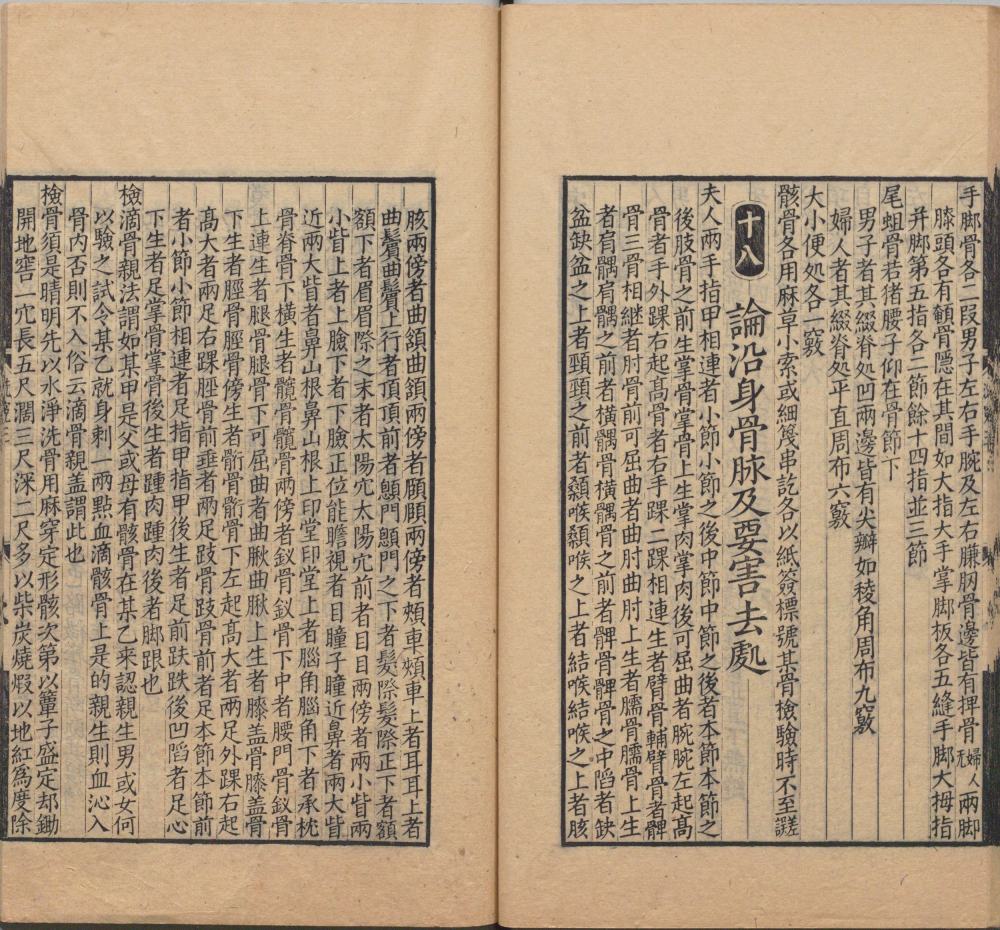 手脚骨各二段男子左右手腕及左右臁肕骨邊皆有捭骨婦人無兩脚
膝頭各有䪼骨隱在其間如大指大手掌脚板各五縫手脚大拇指
并脚第五指各二節餘十四指並三節
尾蛆骨若猪腰子仰在骨節下
男子者其綴脊处凹兩邊皆有尖瓣如稜角周布九竅
婦人者其綴脊处平直周布六竅
大小便処各一竅
骸骨各用麻草小索或細篾串訖各以紙簽標號某骨檢驗時不至差誤
十八 論沿身骨脉及要害去處
夫人兩手指甲相連者小節小節之後中節中節之後者本節本節之
後肢骨之前生掌骨掌骨上生掌肉掌肉後可屈曲者腕腕左起高
骨者手外踝右起高骨者右手踝二踝相連生者臂骨輔臂骨者髀
骨三骨相継者肘骨前可屈曲者曲肘曲肘上生者臑骨臑骨上生
者肩髃肩髃之前者橫髃骨橫髃骨之前者髀骨髀骨之中陷者缺
盆缺盆之上者頸頸之前者顙喉顙喉之上者結喉結喉之上者胲
胲兩傍者曲頷曲頷兩傍者頤頤兩傍者頰車頰車上者耳耳上者
曲鬢曲鬢上行者頂頂前者顖門顖門之下者髮際髮際正下者額
額下者眉眉際之末者太陽穴太陽穴前者目目兩傍者兩小眥兩
小眥上者上臉下者下臉正位能瞻視者目瞳子瞳近鼻者兩大眥
近兩大眥者鼻山根鼻山根上印堂印堂上者腦角腦角下者承枕
骨脊骨下橫生者髖骨髖骨兩傍者釵骨釵骨下中者腰門骨釵骨
上連生者腿骨腿骨下可屈曲者曲脷曲脷上生者膝盖骨膝盖骨
下生者脛骨脛骨傍生者䯒骨䯒骨下左起高大者兩足外踝右起
高大者兩足右踝脛骨前垂者兩足跂骨跂骨前者足本節本節前
者小節小節相連者足指甲指甲後生者足前趺趺後凹陷者足心
下生者足掌骨掌骨後生者踵肉踵肉後者脚跟也
檢滴骨親法謂如某甲是父或母有骸骨在某乙来認親生男或女何
以驗之試令某乙就身刺一兩點血滴骸骨上是的親生則血沁入
骨內否則不入俗云滴骨親盖謂此也
檢骨須是晴明先以水淨洗骨用麻穿定形骸次第以簟子盛定却鋤
開地窖一穴長五尺濶三尺深二尺多以柴炭燒煆以地紅爲度除